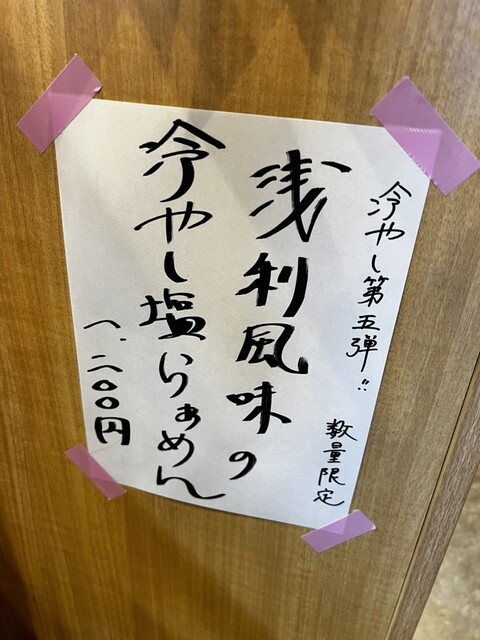 冷やし第五弾!!
数量限定
浅利風味の
冷やし塩らぁめん
一、二〇〇円